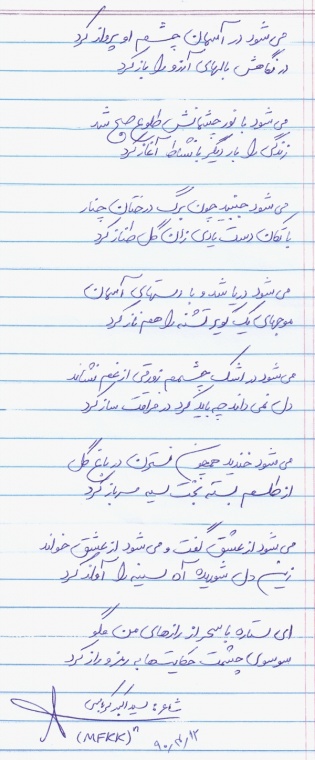 می شود در آسمان چشم او پرواز کرد
در نگاهش بالهای آرزو را باز کرد
می شود با نور چشمانش طلوع صبح شد
زندگی را بار دیگر با نشاط آغاز کرد
می شود جنبید چون برگ درختان چنار
با تکان دست بادی زان گل طناز کرد
می شود دریا شد و با دستهای آسمان
موجهای یک کویر تشنه را هم ناز کرد
می شود در اشک چشمم زورقی از غم نشاند
دل نمی داند چه باید کرد در فراقت ساز کرد
می شود خندید همچون نسترن در باغ گل
از طلسم بسته بخت سیه سر باز کرد
می شود از عشق گفت و می شود از عشق خواند
زین دل شوریده آه سینه را آواز کرد
ای ستاره با سحر از رازهای من مگو
سوسوی چشمت حکایت ها به رمز و راز کرد
شاعر: سید اکبر
(MFKK)
۹۰/۳/۱۲